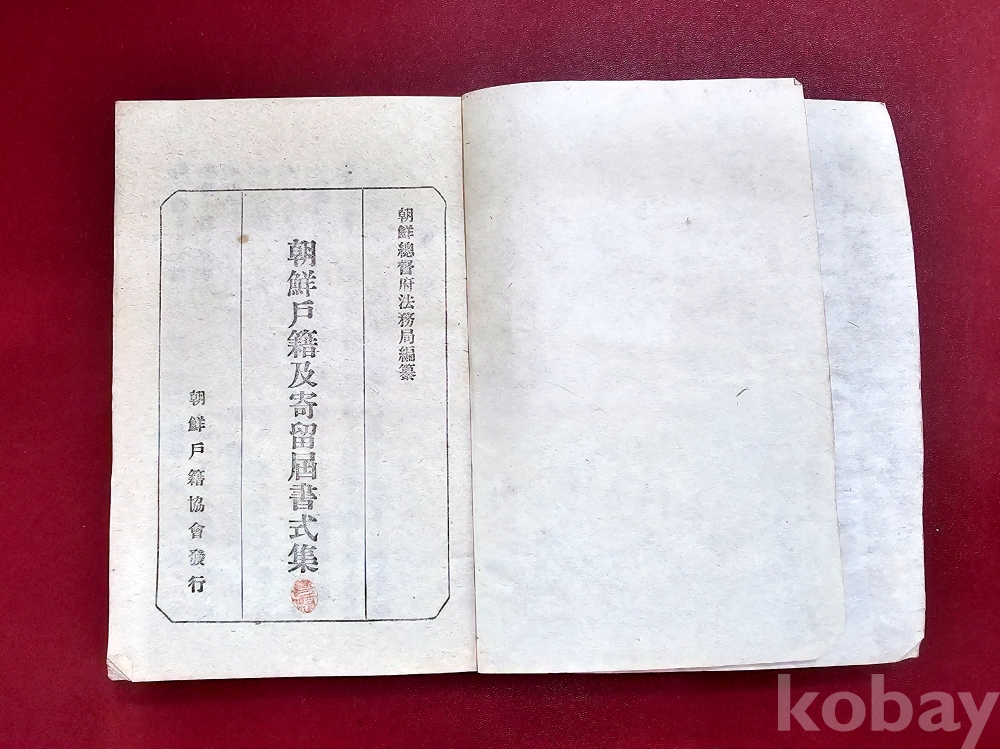 朝鮮總督府法務局編纂
朝鮮戶籍及寄留届書式集
朝鮮戶籍協會發行
kobay